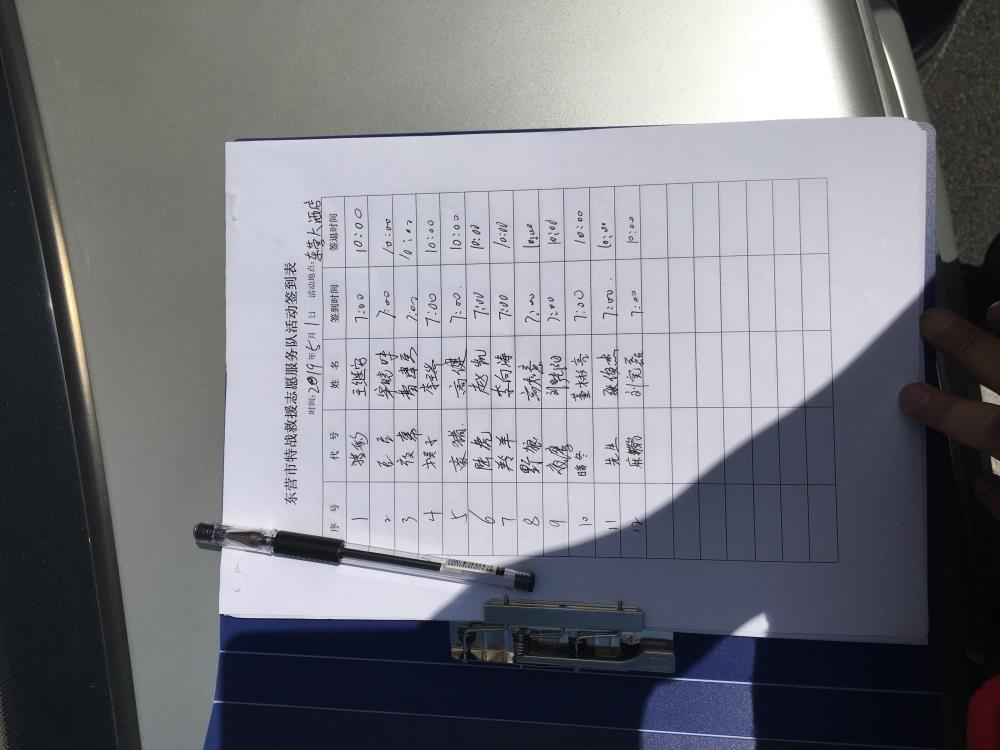 东营市特战救援志愿服务队活动签到表
时间:2019年5月1日 活动地点:东营大酒店
序 号 代 号 姓 名 签到时间 签退时间
1 猎豹 王继宝 7:00 10:00
2 7:00 10:00
3 夜幕 7:00 10:00
4 7:00 10:00
5 7:00. 10:00
6 陆虎 赵凯 7:00 10:00
7 羚羊 李向涛 7:00 10:00
8 野狼 7:00 10:00
9 夜鹰 7:00 10:00
10 暖冬 董彬亮 7:00 10:00
11 先生 张俊杰 7:00. 10:00
12 麻辣 7:00 10:00